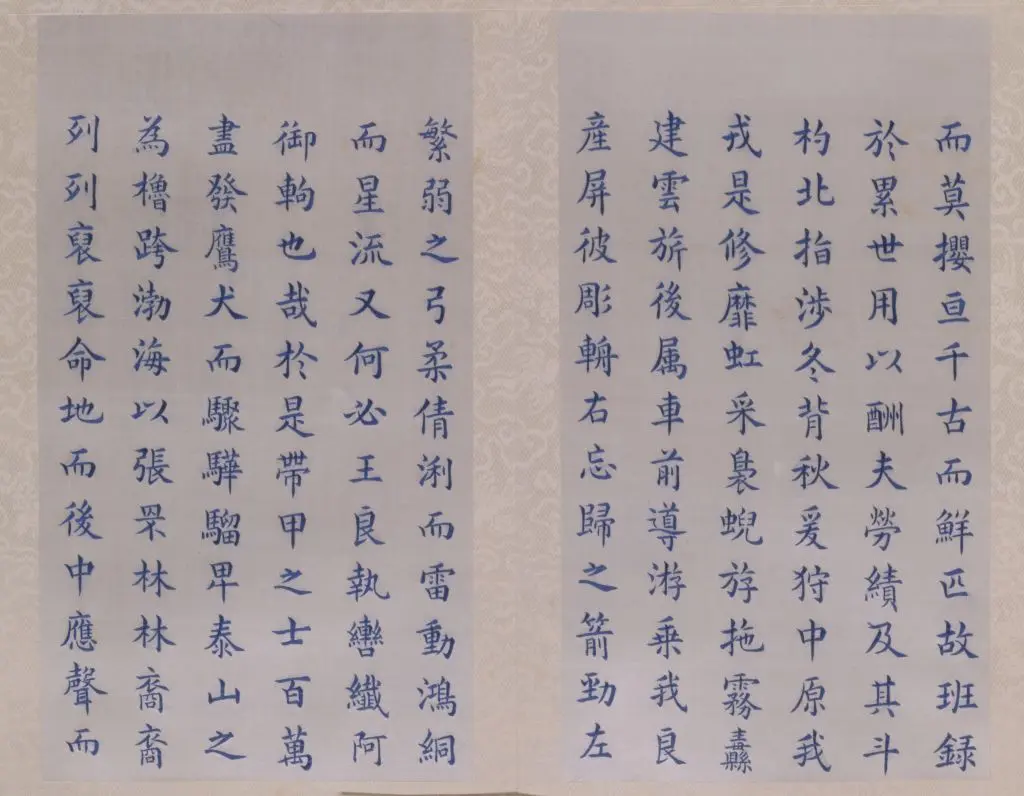 而莫攖亘千古而鮮匹故班録
於累世用以酬夫勞績及其斗
杓北指涉冬背秋爰狩中原我
戎是修靡虹采裊蜺斿拖霧纛
建雲旂後属車前導游乗我良
産屏彼彫輈右忘歸之箭勁左
繁弱之弓柔倩浰而雷動鴻絧
而星流又何必王良執轡纖阿
御輈也哉於是帶甲之士百萬
盡發鷹犬而驟驊騮卑泰山之
為櫓跨渤海以張罘林林裔裔
列列裒裒命地而後中應聲而